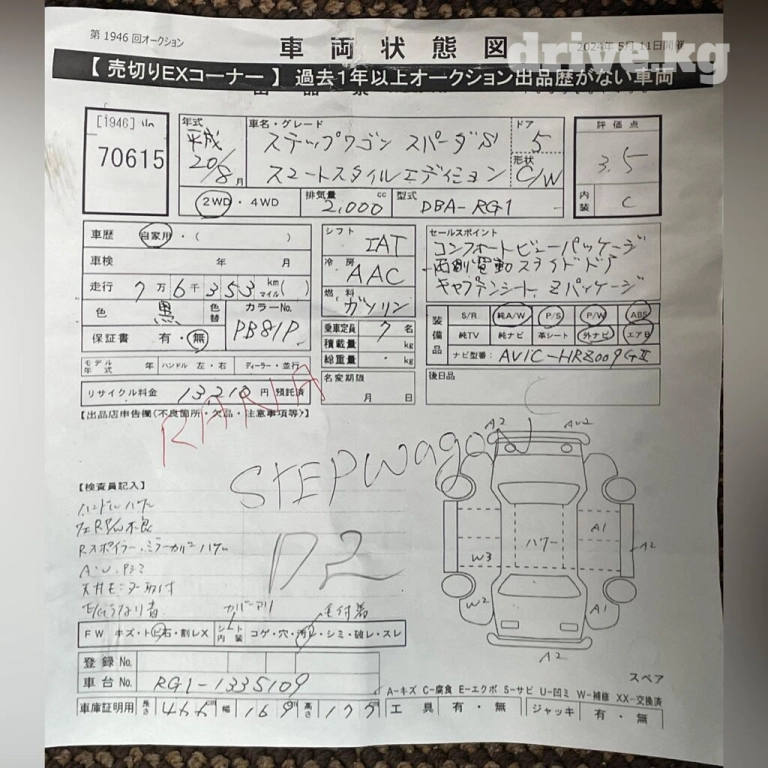 第 1946 回オークション
車両状態図
2024年 5月 11日開催
drive.kg
【 売切りEXコーナー 】 過去1年以上オークション出品歴がない車両
[1946]
70615
年式
平成
20/8月
車名・グレード
ステップワゴン スパーダS
スマートスタイルエディション
ドア
5
形状
C/W
評価点
3.5
内装
C
2WD・4WD
排気量
2,000 cc
型式
DBA-RG1
車歴 自家用・( )
車検 年 月
走行 7万6千353 km マイル( )
色 黒 色替
カラーNo.
PB81P
保証書 有・無
シフト
IAT
冷房
AAC
燃料
ガソリン
乗車定員 7 名
積載量 kg
総重量 kg
名変期限
月 日
セールスポイント
コンフォートビューパッケージ
両側電動スライドドア
キャプテンシート Zパッケージ
装備品
S/R 純A/W P/S P/W ABS
純TV 純ナビ 革シート 外ナビ エアB
ナビ型番: AVIC-HRZ009GII
後日品
モデル年式 年 ハンドル 左・右 ディーラー・並行
リサイクル料金 13,210 円 預託済
【出品店申告欄(不良箇所・欠品・注意事項等)】
RANIA
STEPwagon
D2
【検査員記入】
ハンドルハゲ
A・U・キズ
FW キズ・トビ石・割レX
シート内装 コゲ・穴・汚レ・シミ・破レ・スレ
登録 No.
車台 No. RG1-1335109
車庫証明用 長さ 466 cm 幅 169 cm 高さ 177 cm
A2 AU2
A1 A2
W3 ハゲー
W2 A1
A2
スペア
A-キズ C-腐食 E-エクボ S-サビ U-凹ミ W-補修 XX-交換済
工具 有・無 ジャッキ 有・無